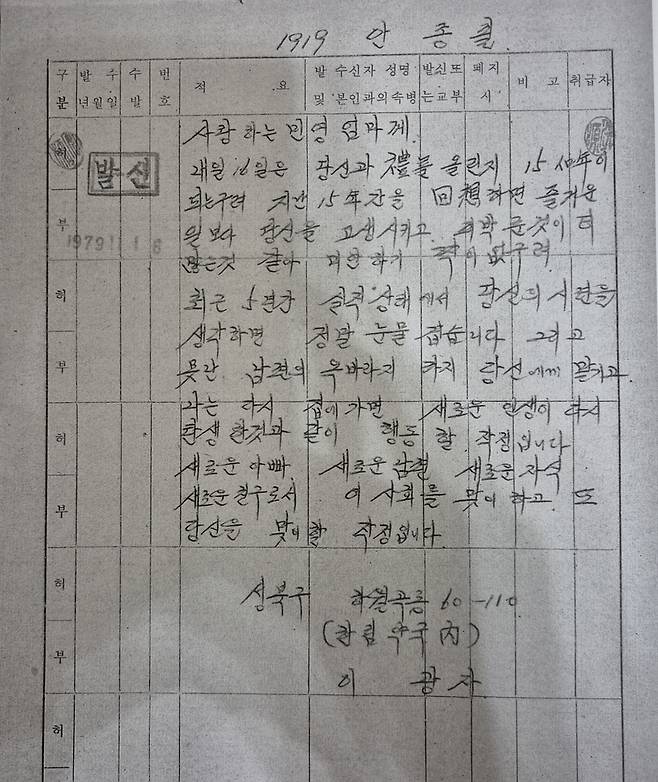 1919 안 종 철
구분 발 수 년월일 수발 번호 적 요 발 수신자 성명 및 본인과의속병 발신또는교부 폐지시 비 고 취급자
사랑 하는 민영 엄마께.
허 발신 1월 16일은 당신과 禮를 올린지 15년이
되는구려 지난 15年간을 回想하면 즐거운
부 1979 1 1 6 일보다 당신을 고생시키고 것이 더
많은것 같아 미안하기 짝이 없구려
허 최근 5년간 실직 상태에서 당신의 시련을
생각하면 정말 눈물 겹습니다 그리고
부 못난 남편의 옥바라지 까지 당신에게 맡기고
나는 다시 집에 가면 새로운 인생이 다시
허 탄생 한것과 같이 행동 할 작정입니다
새로운 아빠 새로운 남편 새로운 자식
새로운 친구로서 이 사회를 맞이 하고 또
부 당신을 맞이할 작정입니다.
허 성북구 하월곡동 60-110
부 (한림약국 內)
이 광 자
허